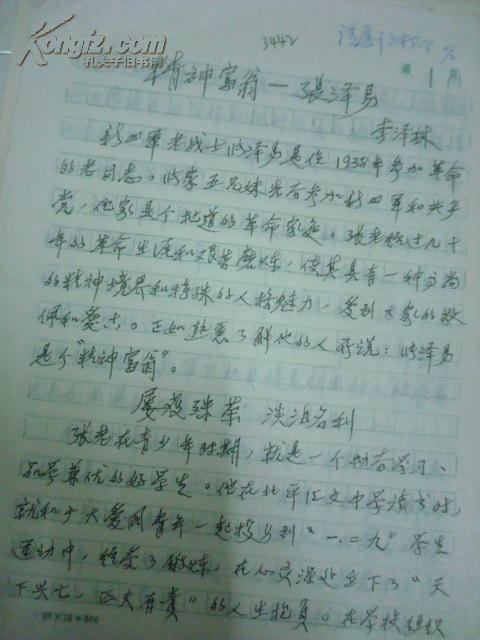 Kongfz.com
孔夫子旧书网
3442
第 1 页
精神富翁—張泽易
李泽林
新四軍老战士张泽易是位1938年参加革命
的老同志。张家五兄妹先后参加新四軍和共产
党，他家是个地道的革命家庭。張老经过几十
年的革命生涯和艰苦磨炼，使其具有一种高尚
的精神境界和特殊的人格魅力，受到大家的敬
佩和爱戴。正如熟悉了解他的人所说：张泽易
是个“精神富翁”。
屡獲殊荣 淡泊名利
張老在青少年时期，就是一个勤奋学习、
品学兼优的好学生。他在北平汇文中学读书时，
就和广大爱国青年一起投身到“一.二九”学生
運动中，经受了鍛炼，在心灵深处立下了“天
下兴亡，匹夫有責”的人生抱負。在学校组织
20×15=300